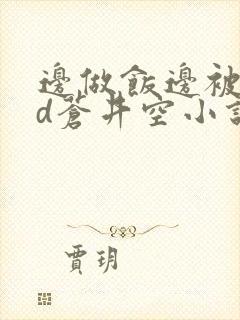 邊做飯邊被
d蒼井空小說
賈玥